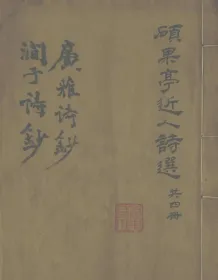 碩果亭近人詩選
共四冊
廣雅詩鈔
澗于詩鈔